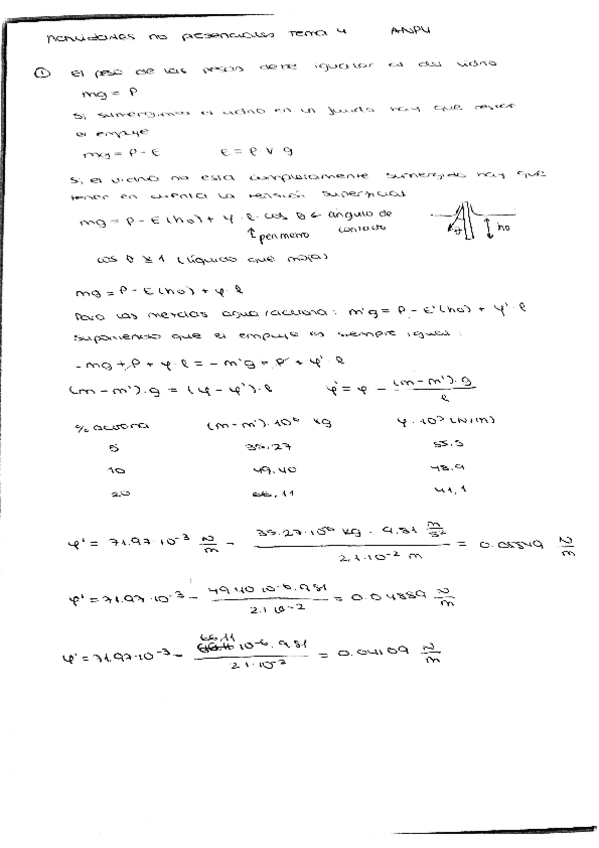 Actividades no presenciales Tema 4 ANPU
① El peso de las pesas debe igualar al del vidrio
mg = P
Si sumergimos el vidrio en un fluido hay que restar
el empuje
mg = P - E E = ρ V g
Si el vidrio no esta completamente sumergido hay que
tener en cuenta la tensión superficial
mg = P - E(h0) + γ · l · cos θ ← angulo de
contacto
↑ perimetro
θ
h0
cos θ ≃ 1 (liquido que moja)
mg = P - E(h0) + φ · l
Para las mezclas agua/acetona: m'g = P - E'(h0) + φ' · l
Suponiendo que el empuje es siempre igual:
-mg + P + φ l = -m'g + P + φ' · l
(m - m') · g = (φ - φ') · l φ' = φ - (m - m') · g / l
% acetona (m - m') · 10⁶ kg γ · 10³ (N/m)
5 35.27 55.5
10 49.40 48.9
20 66.11 41.1
φ' = 71.97 · 10⁻³ N/m - 35.27 · 10⁻⁶ kg · 9.81 m/s² / 2.1 · 10⁻² m = 0.05549 N/m
φ' = 71.97 · 10⁻³ - 49.40 10⁻⁶ · 9.81 / 2.1 10⁻² = 0.04889 N/m
φ' = 71.97 · 10⁻³ - 66.11 10⁻⁶ · 9.81 / 2.1 · 10⁻² = 0.04109 N/m